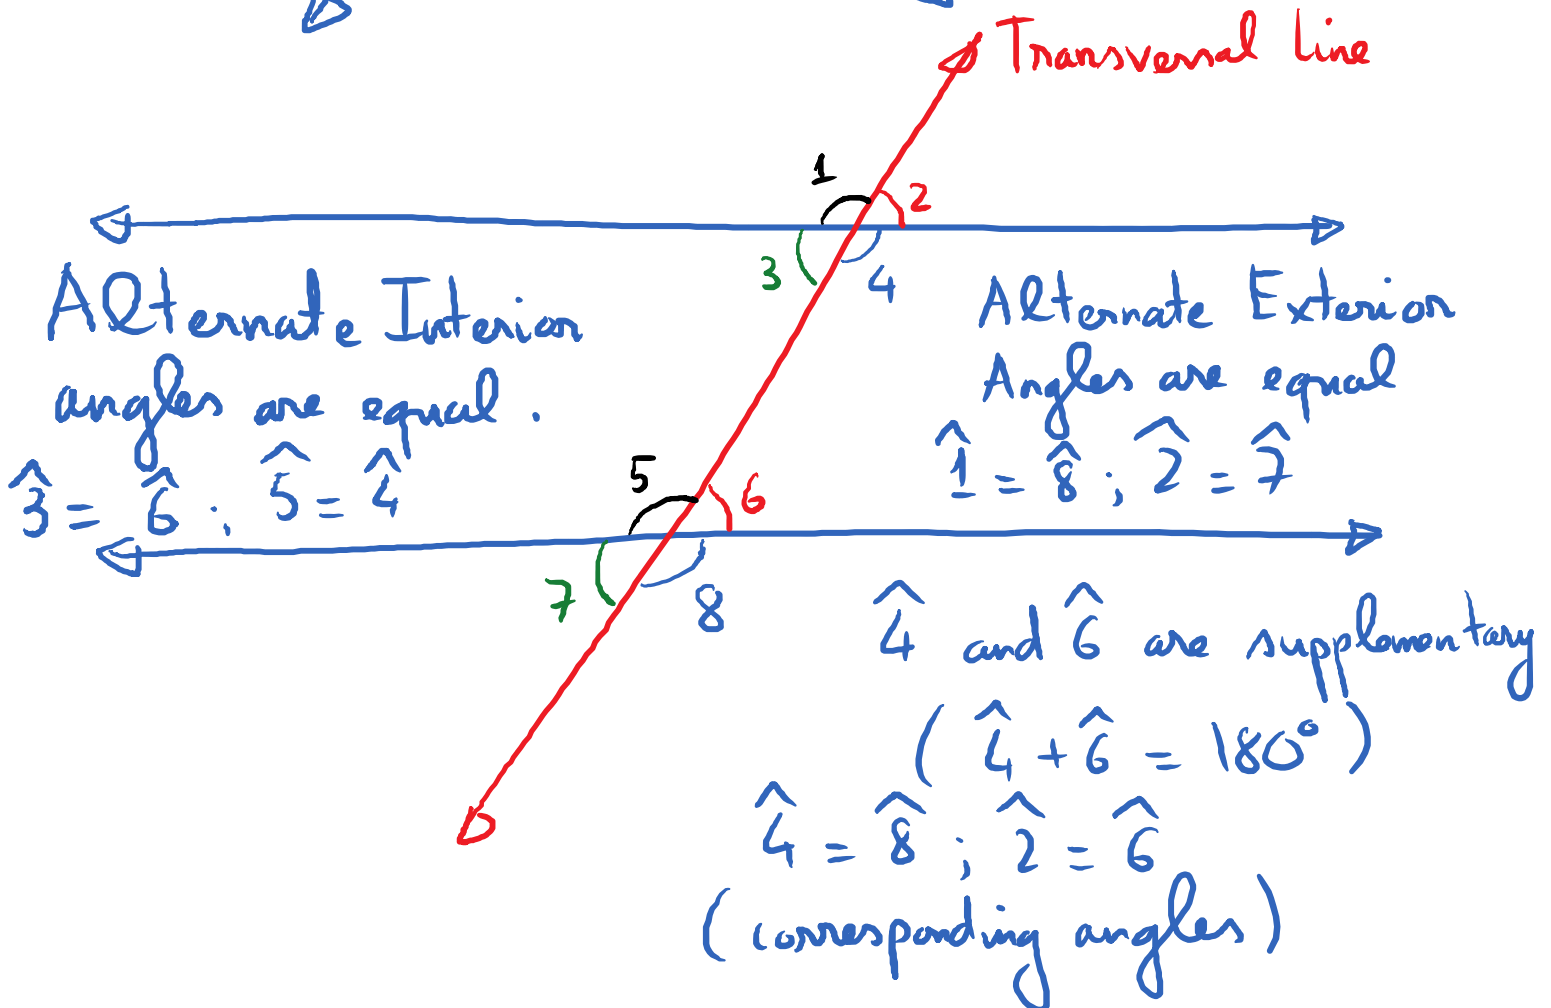 Transversal line
1
2
3
4
Alternate Interior
angles are equal.
3̂ = 6̂ ; 5̂ = 4̂
Alternate Exterior
Angles are equal
1̂ = 8̂ ; 2̂ = 7̂
5
6
7
8
4̂ and 6̂ are supplementary
( 4̂ + 6̂ = 180° )
4̂ = 8̂ ; 2̂ = 6̂
( corresponding angles )